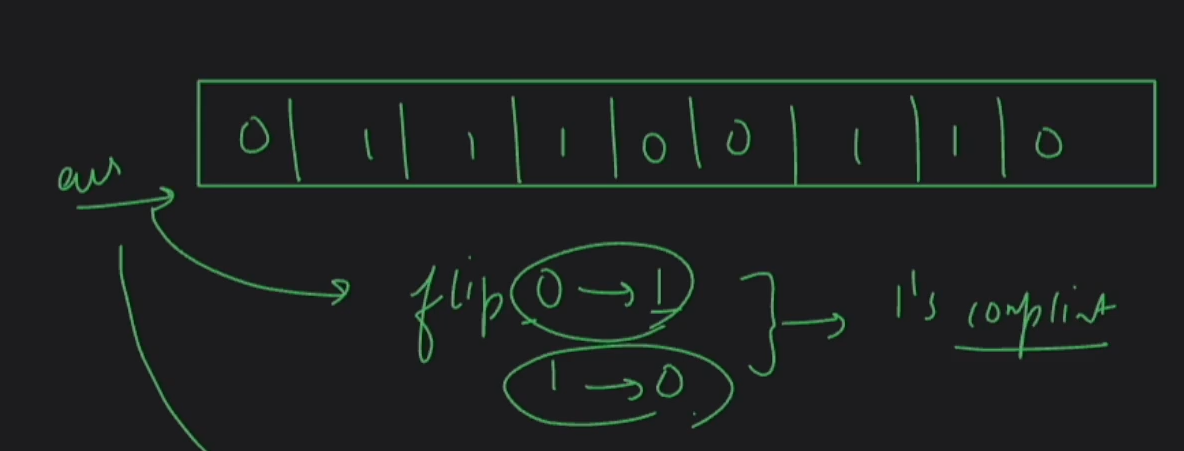 0 | 1 | 1 | 1 | 0 | 0 | 1 | 1 | 0
ans
flip 0 → 1
1 → 0
1's complint